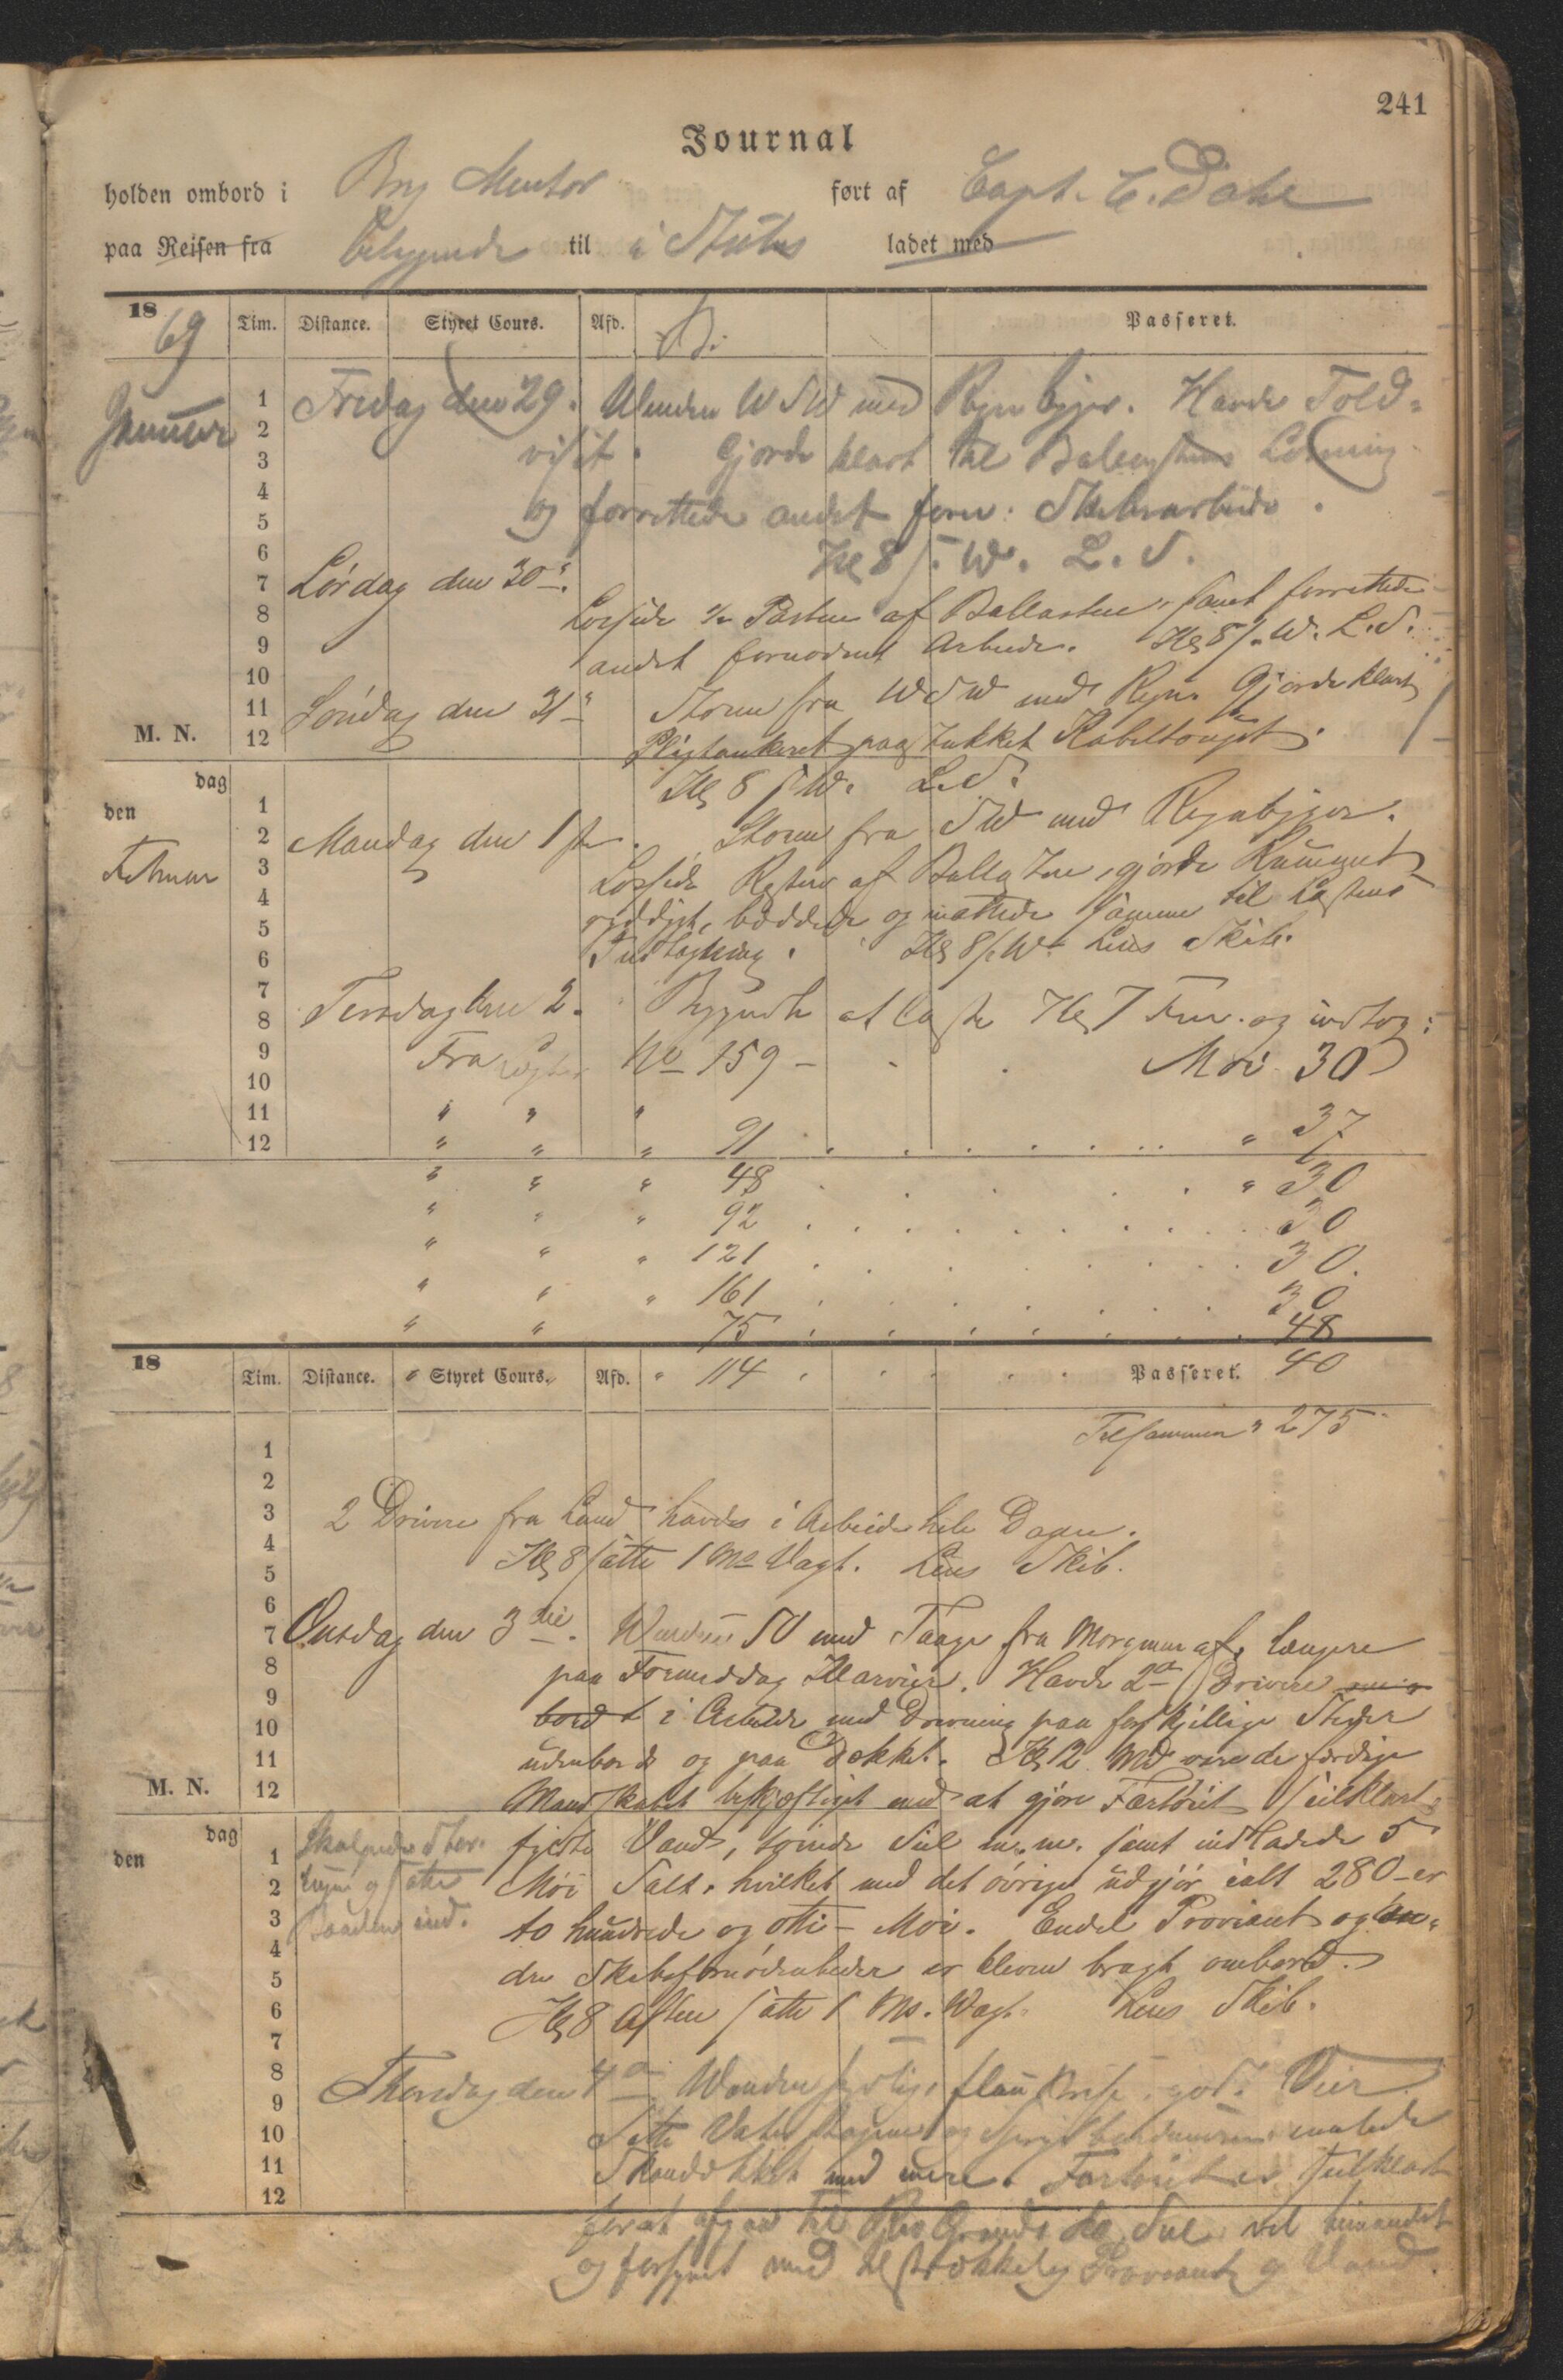 241
Journal
holden ombord i Brig Mentor ført af Capt. C. Dahl
paa Reisen fra til i Stubes ladet med
18 69 Tim. Distance. Styret Cours. Afd. Passeret.
Januar
Fredag den 29. Vinden WSW med Regnbyger. Havde Told-
visit. Gjorde klart til Ballastens Losning
og forrettede andet forn: Skibsarbeide.
Kl 8 s. W. L. S.
Lørdag den 30.
Lossede ½ Parten af Ballasten, samt forrettede
andet fornødent Arbeide. Kl 8 s. W. L. S.
Søndag den 31 Storm fra WSW med Regn Gjorde klart
Pligtankeret paastukket Kabeltouget.
M. N.
Kl 8 s W. L. S.
dag
den
Februar
Mandag den 1ste. Storm fra SW med Regnbyger.
Lossede Resten af Ballasten, gjorde Rummet
ryddigt, og mattede samme til Lastens
Indtagning. Kl 8 s. W. Lens Skib.
Tirsdag den 2. Begyndte at laste Kl 7 Fm. og indtog:
Fra No 159 - . . Moi 30
" " "
" " " 91 . . . . . " 37
" " " 48 . . . . " 30
" " " 92 . . . . . 30
" " " 121 . . . . . 30.
" " " 161 . . . . . 30
" " 75 . . . . . 48
18 Tim. Distance. " Styret Cours. Afd. " 114 . . . Passeret. 40
Tilsammen " 275
2 Drivere fra Land havdes i Arbeide hele Dagen.
Kl 8 satte 1 Mds Vagt. Lens Skib.
Onsdag den 3die. Vinden SV med Taage fra Morgenen af, længere
paa Formiddag Klarveir. Havde 2 Drivere
bord i Arbeide med Drivning paa forskjellige Steder
udenbords og paa Dækket. Kl 12 Md vare de færdige
M. N.
Mandskabet beskjæftiget med at gjøre Fartøiet seilklart,
dag
den
fyldte Vand, Seil m.m. samt indladede 5
Moi Salt, hvilket med det øvrige udgjør ialt 280 - er
to hundrede og otti - Moi. Endel Proviant og an-
dre Skibsfornødenheder er bleven bragt ombord.
Kl 8 Aften satte 1 Ms. Vagt. Lens Skib.
og satte
Baaden ind.
Thorsdag den 4 Vinden flau god Veir
Satte malede
Skandækket med mere. Fartøiet er seilklart
for at afgaa til Rio Grande do Sul vel bemandet
og forsynet med tilstrækkelig Proviant og Vand.